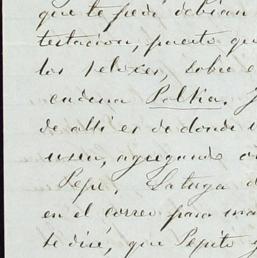 que te pedí debían
testacion, puesto que
los reloxes, sobre e
cadena Polka. J
de allí es de donde
usen, agregando
Pepe. La tuya d
en el correo para ma
te diré, que Pepito y